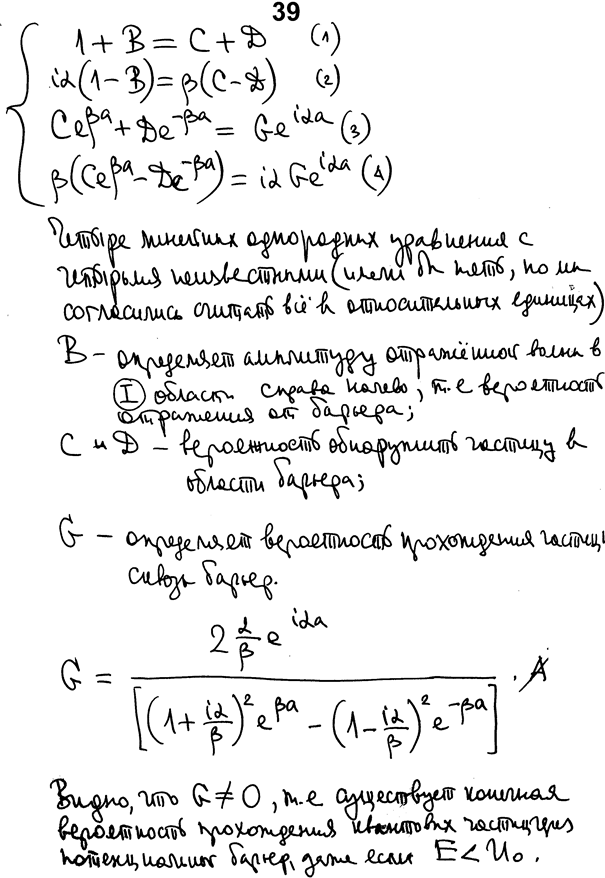 39
1 + B = C + D (1)
iα(1 − B) = β(C − D) (2)
Ce^{βa} + De^{−βa} = Ge^{iαa} (3)
β(Ce^{βa} − De^{−βa}) = iα Ge^{iαa} (4)
Четыре линейных однородных уравнения с
четырьмя неизвестными (имели бы пять, но мы
согласились считать всё в относительных единицах)
B – определяет амплитуду отражённой волны в
I области справа налево, т.е вероятность
отражения от барьера;
C и D – вероятность обнаружить частицу в
области барьера;
G – определяет вероятность прохождения частицы
сквозь барьер.
G = \frac{2 \frac{α}{β} e^{iαa}}{[(1 + \frac{iα}{β})^2 e^{βa} − (1 − \frac{iα}{β})^2 e^{−βa}]} · A
Видно, что G ≠ 0, т.е существует конечная
вероятность прохождения квантовых частиц через
потенциальный барьер, даже если E < U₀.